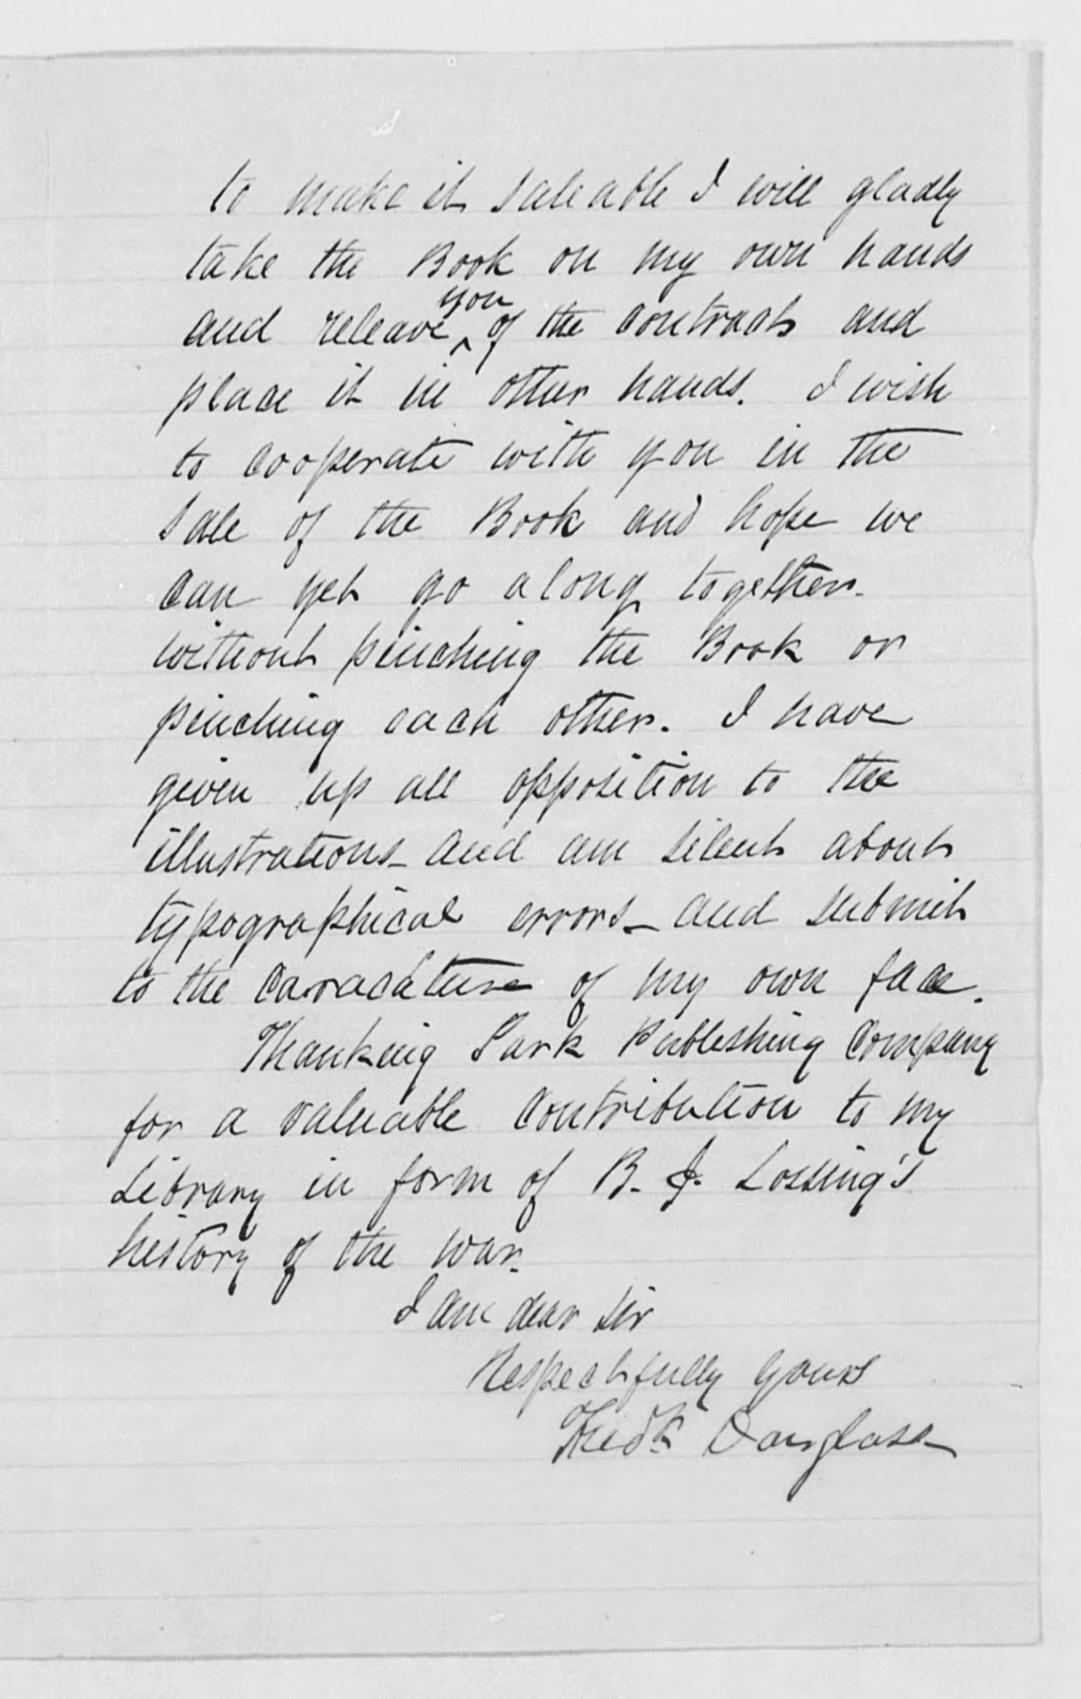 to make it saleable I will gladly
take the Book on my own hands
and releave you of the contract and
place it in other hands. I wish
to cooperate with you in the
sale of the Book and hope we
can yet go along together.
without pinching the Book or
pinching each other. I have
given up all opposition to the
illustrations and am silent about
typographical errors and submit
to the carracature of my own face.
Thanking Park Publishing Company
for a valuable contribution to my
Library in form of B. J. Lossing's
history of the war.
I am dear Sir
Respectfully yours
Fredk Douglass